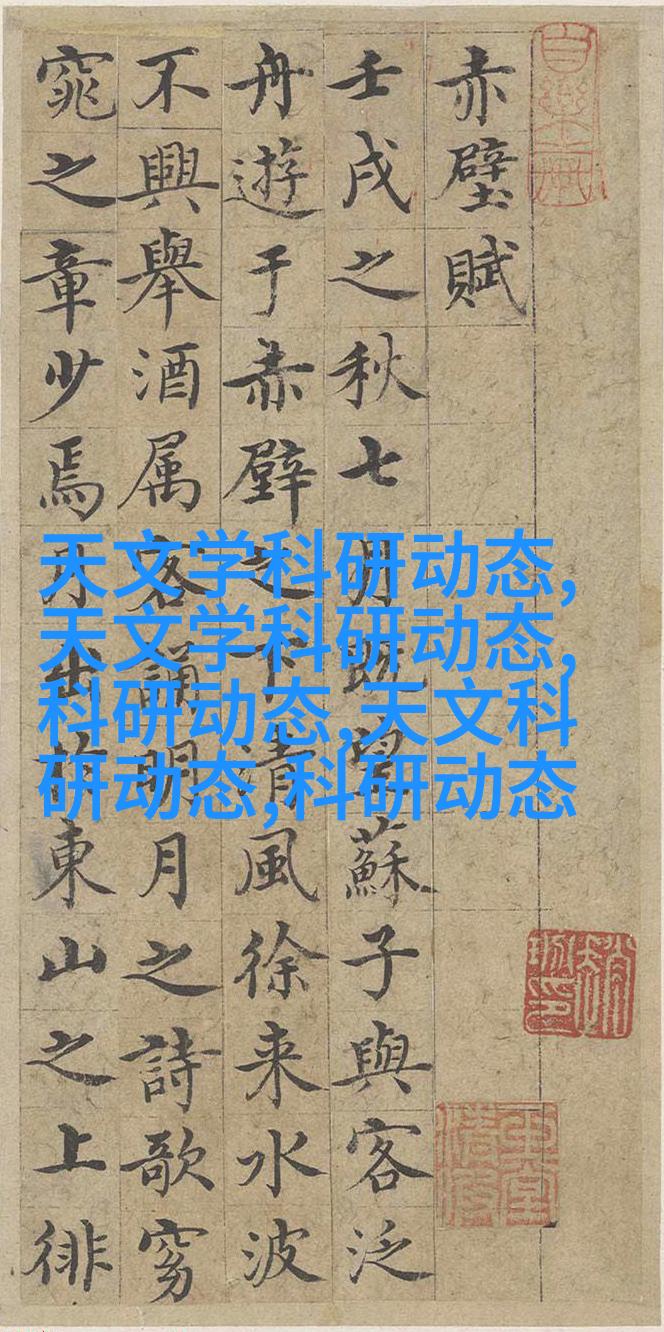 赤壁賦
壬戌之秋七月既望蘇子與客泛
舟遊于赤壁之下清風徐来水波
不興舉酒属客誦明月之詩歌窈
窕之章少焉月出於東山之上徘
天文学科研动态,
天文学科研动态,
科研动态,天文科
研动态,科研动态